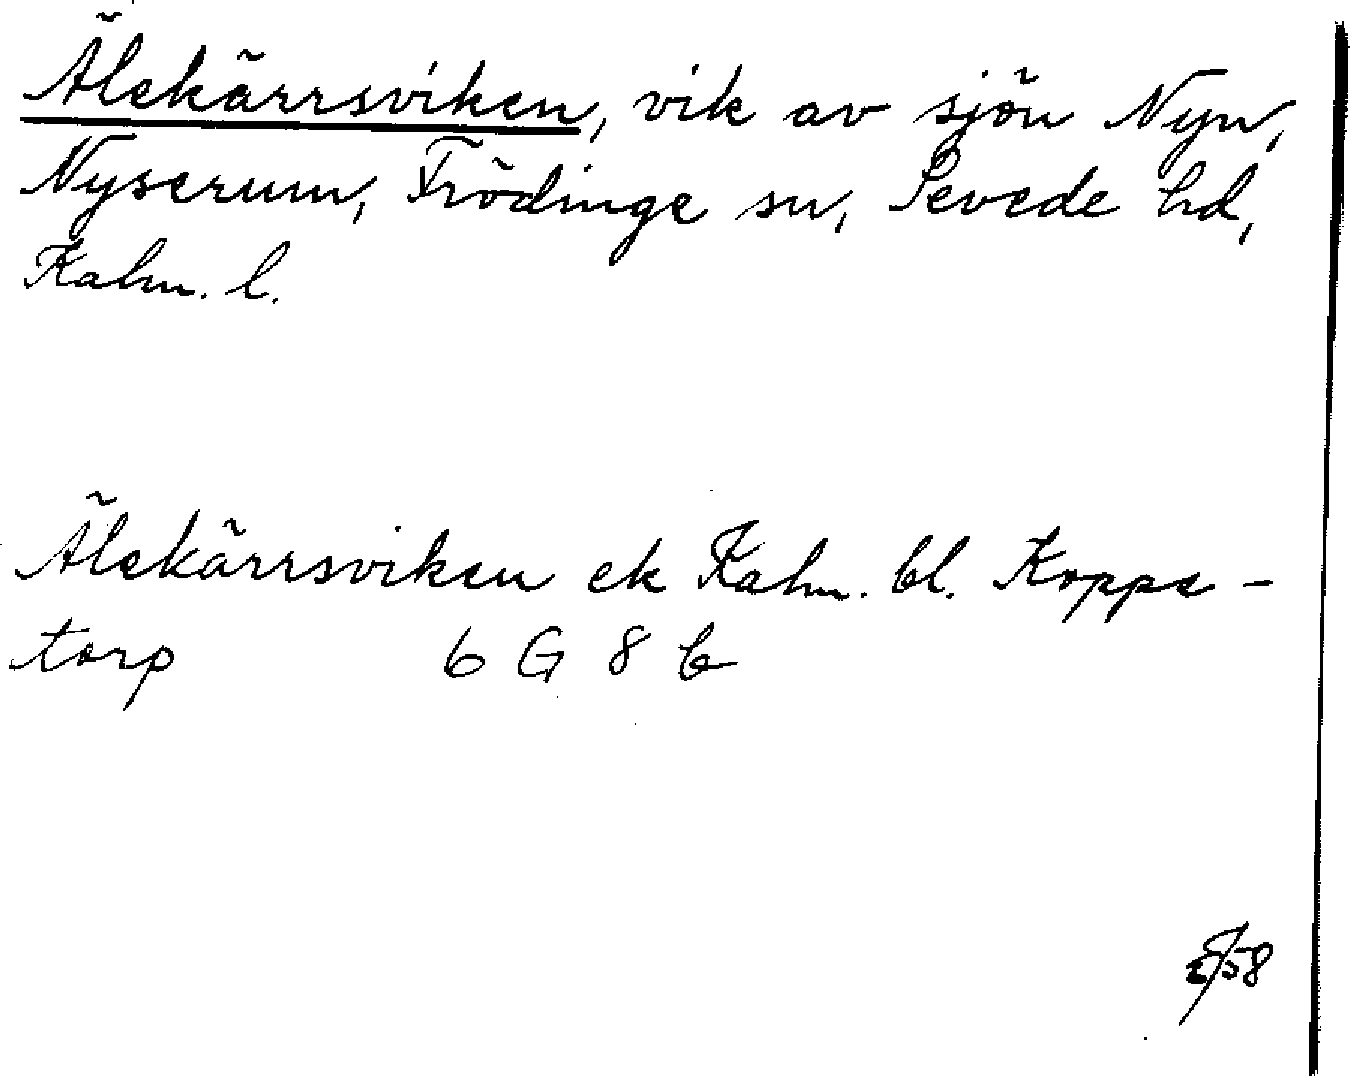 Älekärrsviken, vik av sjön Nyn,
Nyserum, Frödinge sn, Sevede hd,
Kalm. l.
Älekärrsviken ek Kalm. bl. Koppe-
torp 6 G 8 b